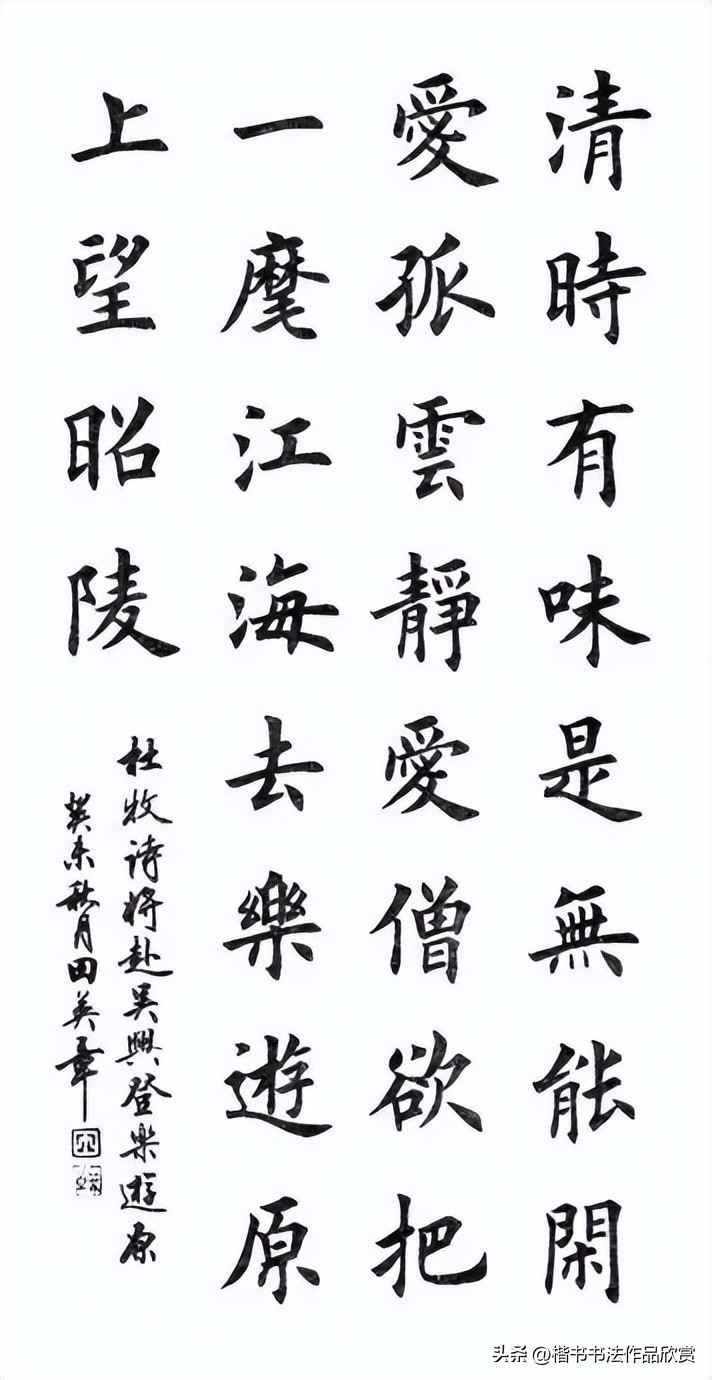 清時有味是無能閑
愛孤雲靜愛僧欲把
一麾江海去樂遊原
上望昭陵
杜牧诗将赴吴興登樂遊原
癸未秋月田英章
头条 @楷书书法作品欣赏